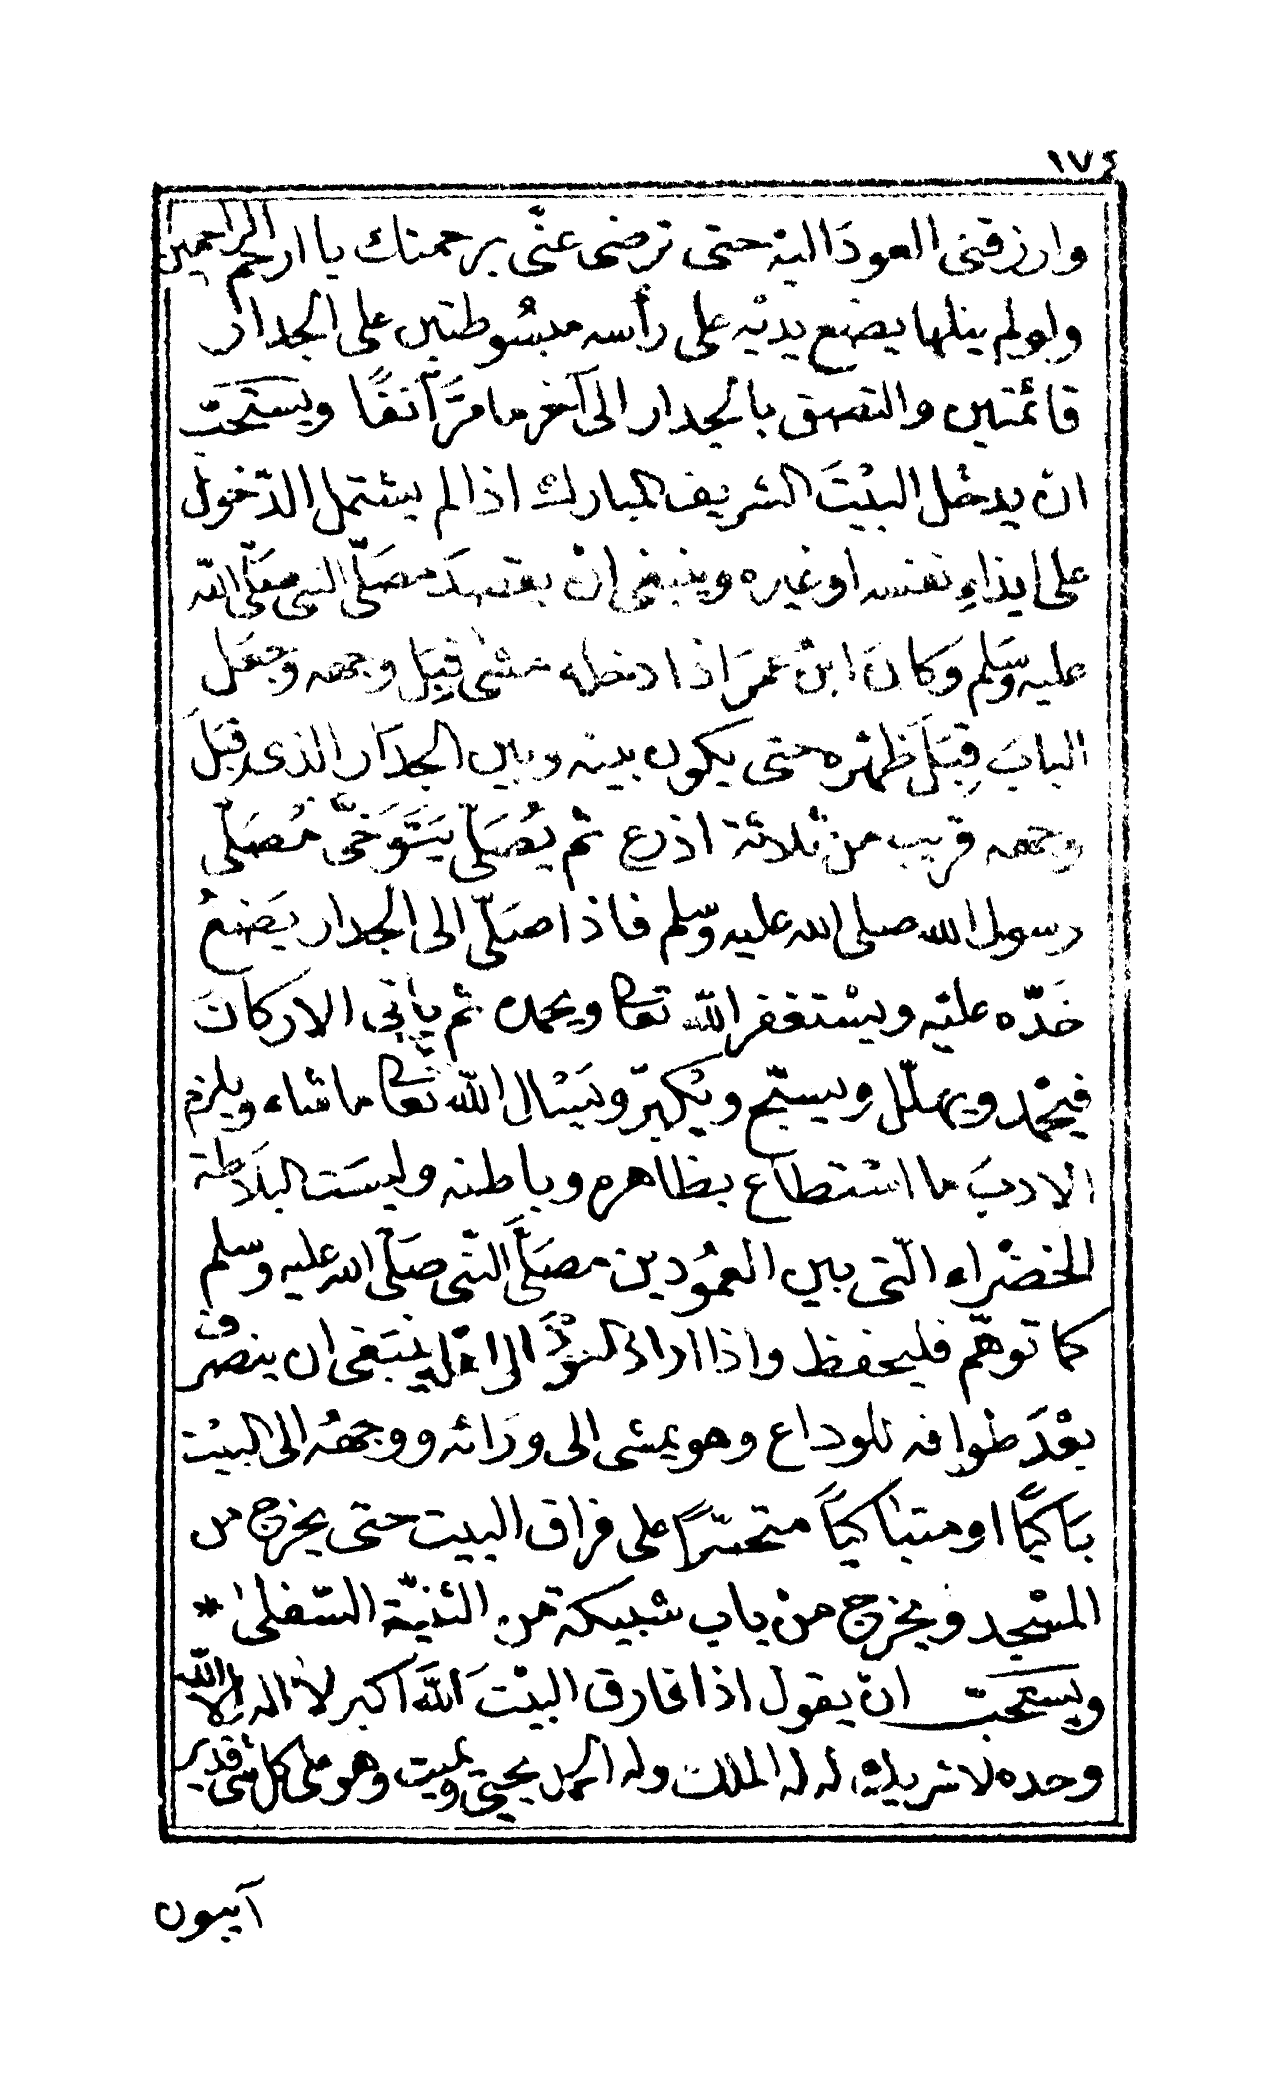 ١٧٤
وارزقني العودَ اليهْ حتى ترضى عنّى برحمتك يا ارحم الراحمين
ولو لم ينلها يضع يديْه على رأسه مبسُوطتين على الجدار
قائمتين والتصق بالجدار الى آخر ما مرَّ آنفًا ويستحبّ
ان يدخل البيْتَ الشريف المبارك اذا لم يشتمل الدّخول
على ايذاءِ نفسه او غيره وينبغى انْ يقصدَ مصَلّى النبى صَلّى الله
عليه وسَلم وَكانَ ابنُ عمرَ اذا دخله مشٰى قِبَل وجهه وَجعَل
البابَ قِبَلَ ظهْره حتى يكون بينه وبين الجدَار الذى قِبَلَ
وجهه قريب من ثلاثة اذرع ثم يُصَلّى يَتَوَخّى مُصَلّى
رسول الله صلى الله عليه وسّلم فاذا صَلّى الى الجدار يَضعُ
خَدّه عليْه ويسْتغفر الله تعالى ويحمده ثم يأتى الاركانَ
فيحْمد ويهلّل ويسبّح ويُكبّر ويَسْال الله تعالى ما شاء ويلزم
الادبَ ما اسْتطاع بظاهره وباطنه وليسَت البلَاطة
الخضْراء الّتى بين العمُودين مصَلَّى النّبى صَلّى الله عليه وسلم
كما توهّم فليحفظ واذا اراد النفوْذَ الى اهْله ينبَغى ان ينصرف
بعْدَ طوافه للوداع وهو يمشى الى ورَائه ووجههُ الى البيْت
بَاكيًا او متباكيًا متحسّرًا على فراق البيت حتى يخرج من
المسْجد ويخرج منْ باب شبيكة من الثنيّة السّفلىٰ *
ويستحبّ انْ يقول اذا فارق البيْتَ اَللهُ اَكبر لا اله الا الله
وحده لا شريك له له الملك وله الحمد يحيى ويميت وهو على كل شئ قدير
آيبون